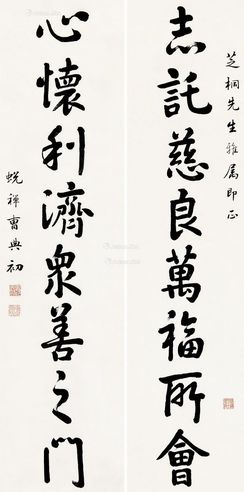 芝桐先生雅属即正
志託慈良萬福所會
心懷利濟眾善之門
蜕禅曹典初